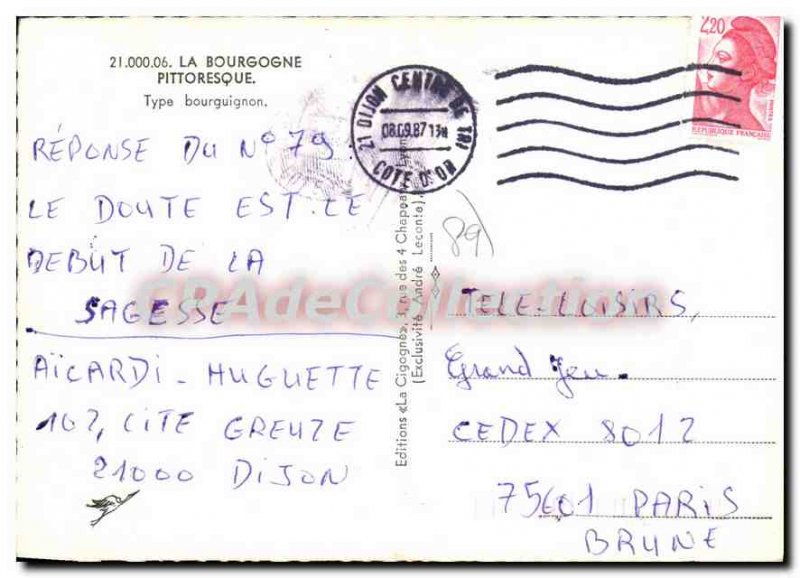 21.000.06. LA BOURGOGNE
PITTORESQUE.
Type bourguignon.
RÉPONSE DU N° 79
LE DOUTE EST LE
DEBUT DE LA
SAGESSE
AÏCARDI - HUGUETTE
107, CITE GREUZE
21000 DIJON
Editions «La Cigogne», rue des 4 Chapea
(Exclusivité André Leconte).
21 DIJON CENTRE DE TRI
08.09.87 13H
COTE D'OR
2,20
REPUBLIQUE FRANÇAISE
89)
CPAdeCollection
TELE-LOISIRS,
Grand Jeu.
CEDEX 8012
75601 PARIS
BRUNE